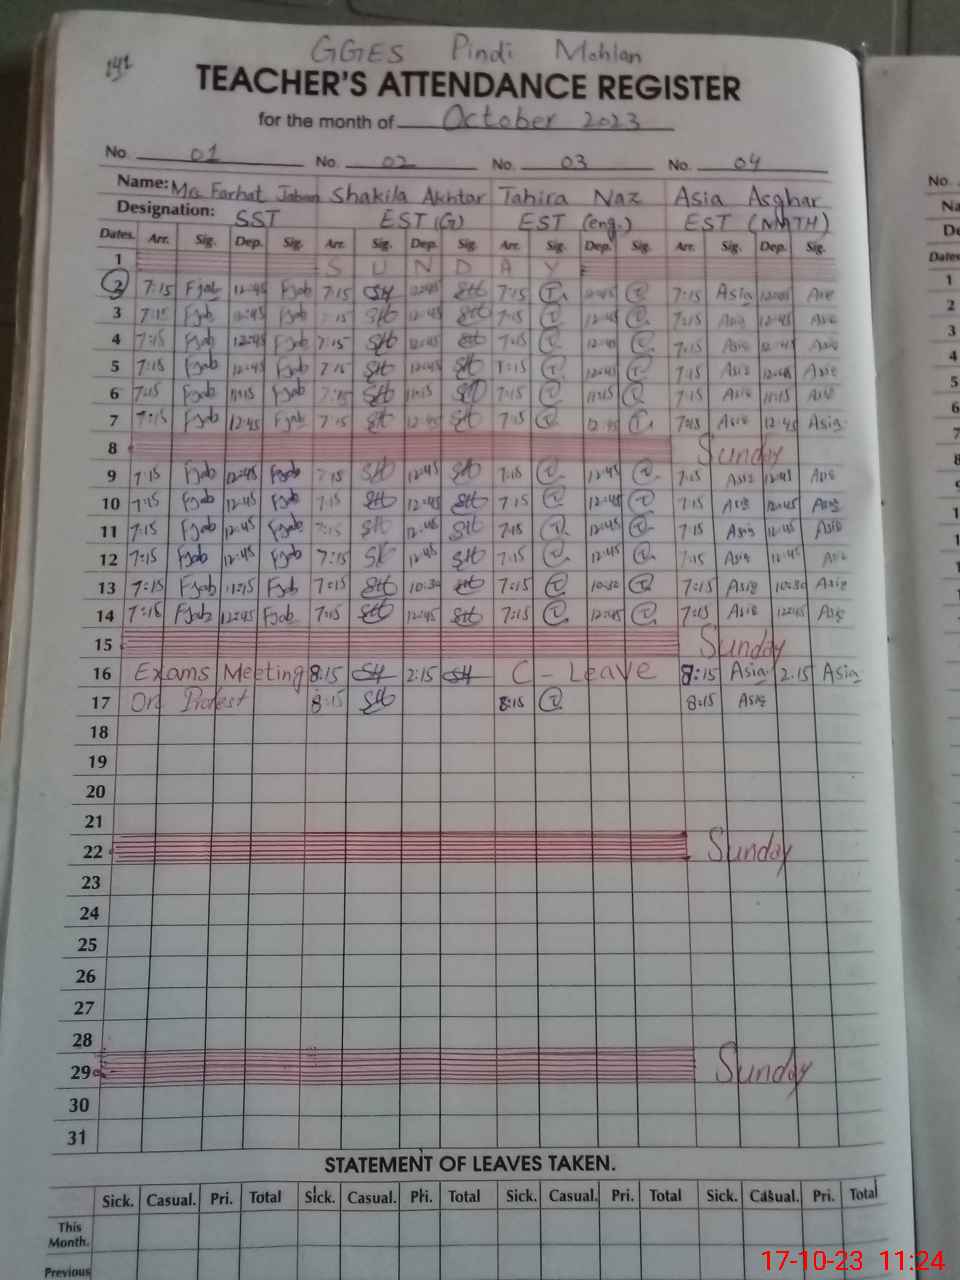 141
GGES Pindi Mohlan
TEACHER'S ATTENDANCE REGISTER
for the month of October 2023
No. 01 No. 02 No. 03 No. 04 No.
Name: Mrs Farhat Jabeen Shakila Akhtar Tahira Naz Asia Asghar Na
Designation: SST EST (G) EST (eng.) EST (MATH) De
Dates. Arr. Sig. Dep. Sig. Arr. Sig. Dep. Sig. Arr. Sig. Dep. Sig. Arr. Sig. Dep. Sig. Dates
1 SUNDAY 1
2 7:15 Fjab 12:45 Fjab 7:15 SH 12:45 SH 7:15 T 12:45 T 7:15 Asia 12:45 Asia 2
3 7:15 Fjab 12:45 Fjab 7:15 SH 12:45 SH 7:15 T 12:45 T 7:15 Asia 12:45 Asia 3
4 7:15 Fjab 12:45 Fjab 7:15 SH 12:45 SH 7:15 T 12:45 T 7:15 Asia 12:45 Asia 4
5 7:15 Fjab 12:45 Fjab 7:15 SH 12:45 SH 7:15 T 12:45 T 7:15 Asia 12:45 Asia 5
6 7:15 Fjab 11:15 Fjab 7:15 SH 11:15 SH 7:15 T 11:15 T 7:15 Asia 11:15 Asia 6
7 7:15 Fjab 12:45 Fjab 7:15 SH 12:45 SH 7:15 T 12:45 T 7:15 Asia 12:45 Asia 7
8 Sunday
9 7:15 Fjab 12:45 Fjab 7:15 SH 12:45 SH 7:15 T 12:45 T 7:15 Asia 12:45 Asia
10 7:15 Fjab 12:45 Fjab 7:15 SH 12:45 SH 7:15 T 12:45 T 7:15 Asia 12:45 Asia
11 7:15 Fjab 12:45 Fjab 7:15 SH 12:45 SH 7:15 T 12:45 T 7:15 Asia 12:45 Asia
12 7:15 Fjab 12:45 Fjab 7:15 SH 12:45 SH 7:15 T 12:45 T 7:15 Asia 12:45 Asia
13 7:15 Fjab 11:15 Fjab 7:15 SH 10:30 SH 7:15 T 10:30 T 7:15 Asia 10:30 Asia
14 7:15 Fjab 12:45 Fjab 7:15 SH 12:45 SH 7:15 T 12:45 T 7:15 Asia 12:45 Asia
15 Sunday
16 Exams Meeting 8:15 SH 2:15 SH C - Leave 8:15 Asia 2:15 Asia
17 On Protest 8:15 SH 8:15 T 8:15 Asia
18
19
20
21
22 Sunday
23
24
25
26
27
28
29 Sunday
30
31
STATEMENT OF LEAVES TAKEN.
Sick. Casual. Pri. Total Sick. Casual. Pri. Total Sick. Casual. Pri. Total Sick. Casual. Pri. Total
This Month.
Previous
17-10-23 11:24